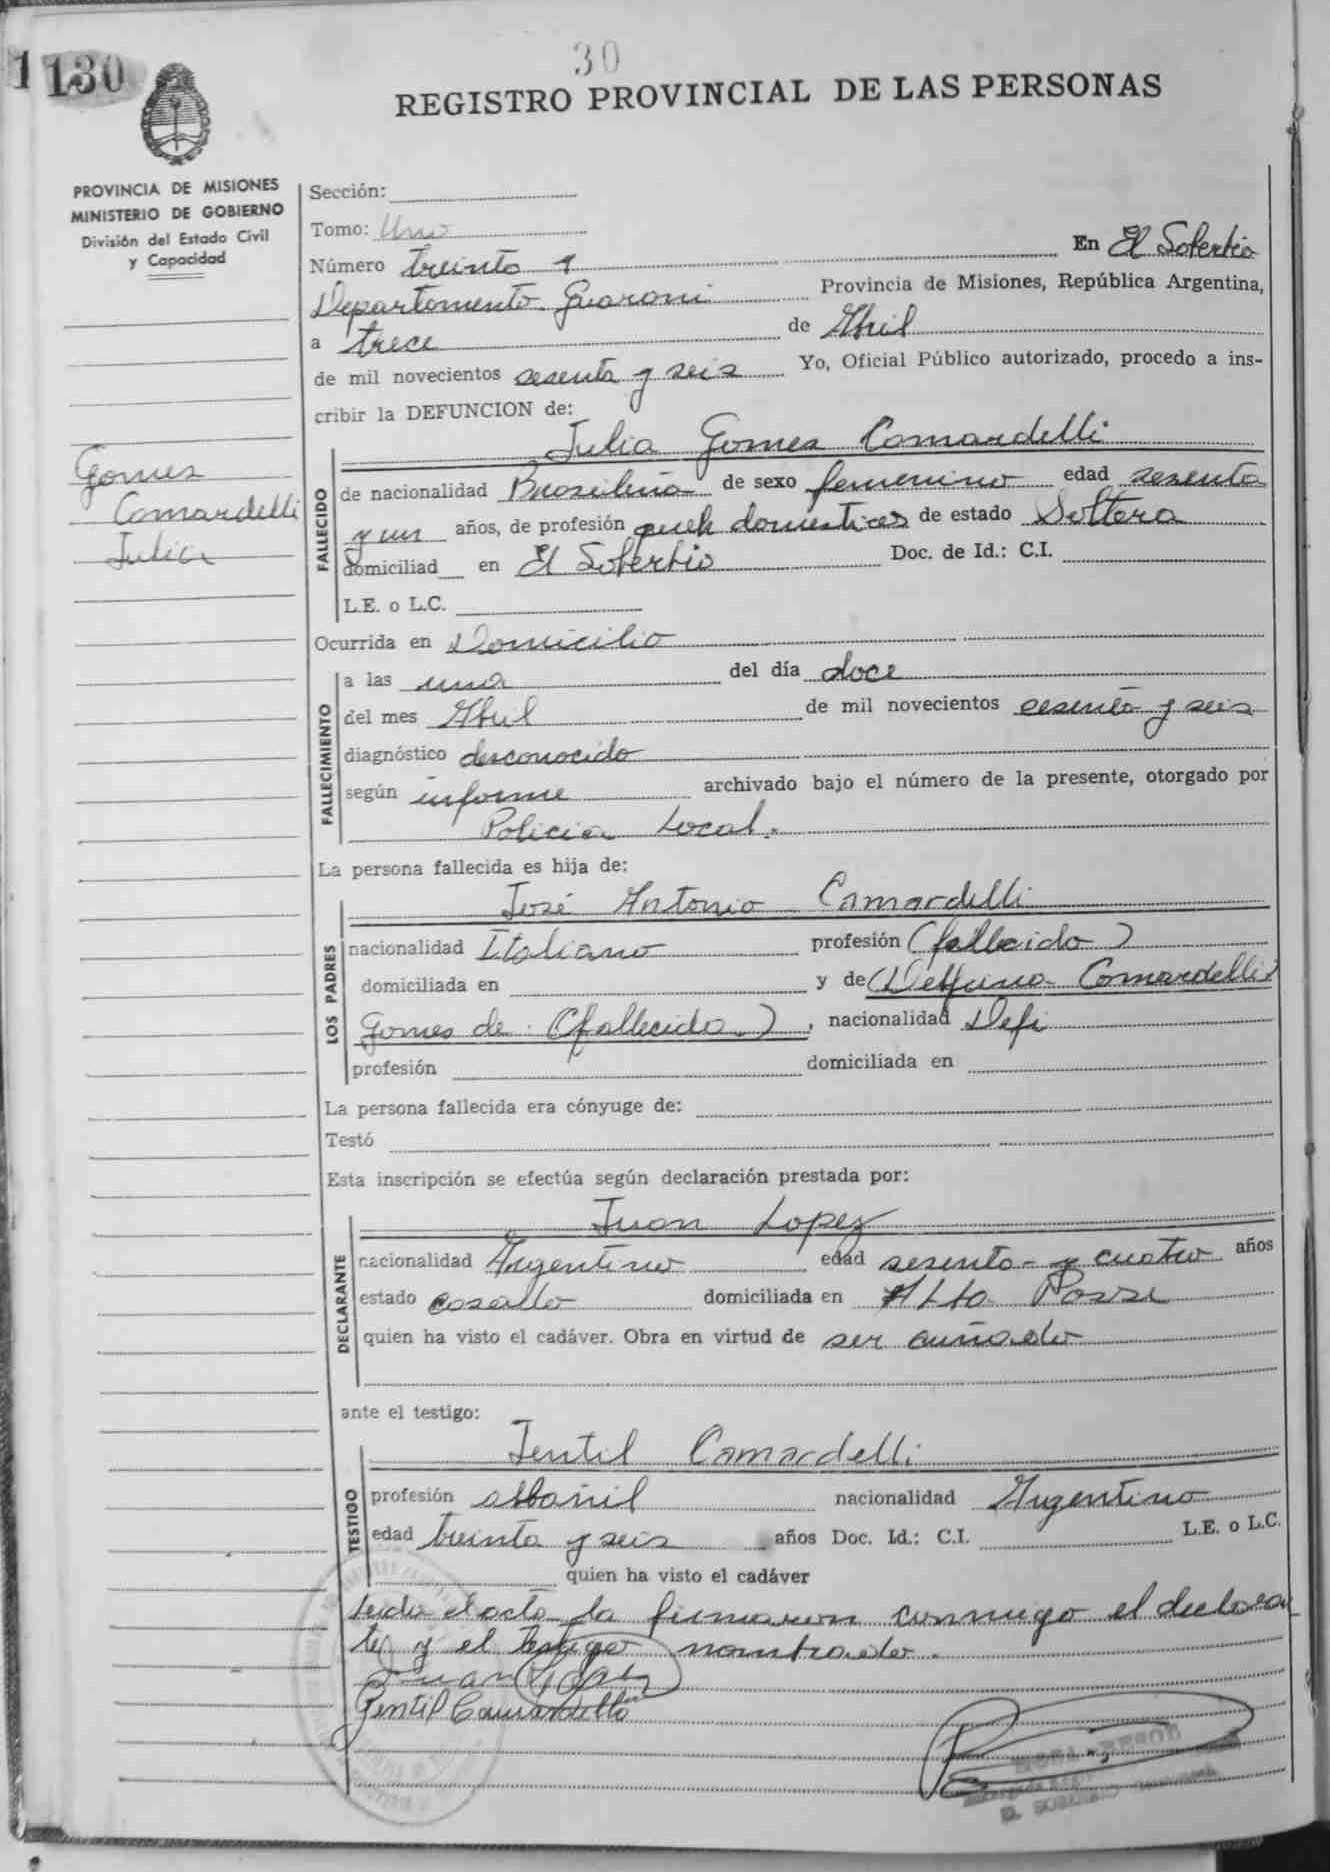 30
1 130
REGISTRO PROVINCIAL DE LAS PERSONAS
PROVINCIA DE MISIONES
MINISTERIO DE GOBIERNO
División del Estado Civil
y Capacidad
Gomes
Camardelli
Julia
Sección:
Tomo: Uno
Número treinta En El Soberbio
Departamento Guarani Provincia de Misiones, República Argentina,
a trece de Abril
de mil novecientos sesenta y seis Yo, Oficial Público autorizado, procedo a ins-
cribir la DEFUNCION de:
Julia Gomes Camardelli
FALLECIDO
de nacionalidad Brasileña de sexo femenino edad sesenta
y un años, de profesión queh domesticos de estado Soltera
domiciliad en El Soberbio Doc. de Id.: C.I.
L.E. o L.C.
Ocurrida en Domicilio
FALLECIMIENTO
a las una del día doce
del mes Abril de mil novecientos sesenta y seis
diagnóstico desconocido
según informe archivado bajo el número de la presente, otorgado por
Policia Local.
La persona fallecida es hija de:
José Antonio Camardelli
LOS PADRES
nacionalidad Italiano profesión (fallecido)
domiciliada en y de (Delfina Camardelli)
Gomes de (fallecida), nacionalidad
profesión domiciliada en
La persona fallecida era cónyuge de:
Testó
Esta inscripción se efectúa según declaración prestada por:
Juan Lopez
DECLARANTE
nacionalidad Argentino edad sesenta y cuatro años
estado casado domiciliada en Alto
quien ha visto el cadáver. Obra en virtud de ser cuñado
ante el testigo:
Jentil Camardelli
TESTIGO
profesión albañil nacionalidad Argentino
edad treinta y seis años Doc. Id.: C.I. L.E. o L.C.
quien ha visto el cadáver
Leida el acta la firmaron conmigo el declaran
te y el testigo nombrado.
Juan Lopez
Gentil Camardelli
EL SOBERBIO